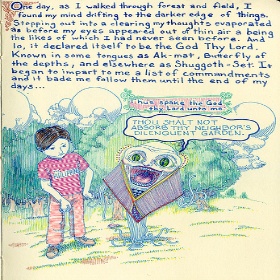 One day, as I walked through forest and field, I
found my mind drifting to the darker edge of things.
Stopping out into a clearing my thoughts evaporated
as before my eyes appeared out of thin air a being
the likes of which I had never seen before. And
lo, it declared itself to be the God Thy Lord.
Known in some tongues as Ak-mat, Butterfly of
the depths, and elsewhere as Shuggoth-Set. It
began to impart to me a list of commandments
and it bade me follow them until the end of my
days...
thus spake the God
thy Lord unto me
THOU SHALT NOT
ABSORB THY NEIGHBOR'S
DILENQUENT GARDEN.